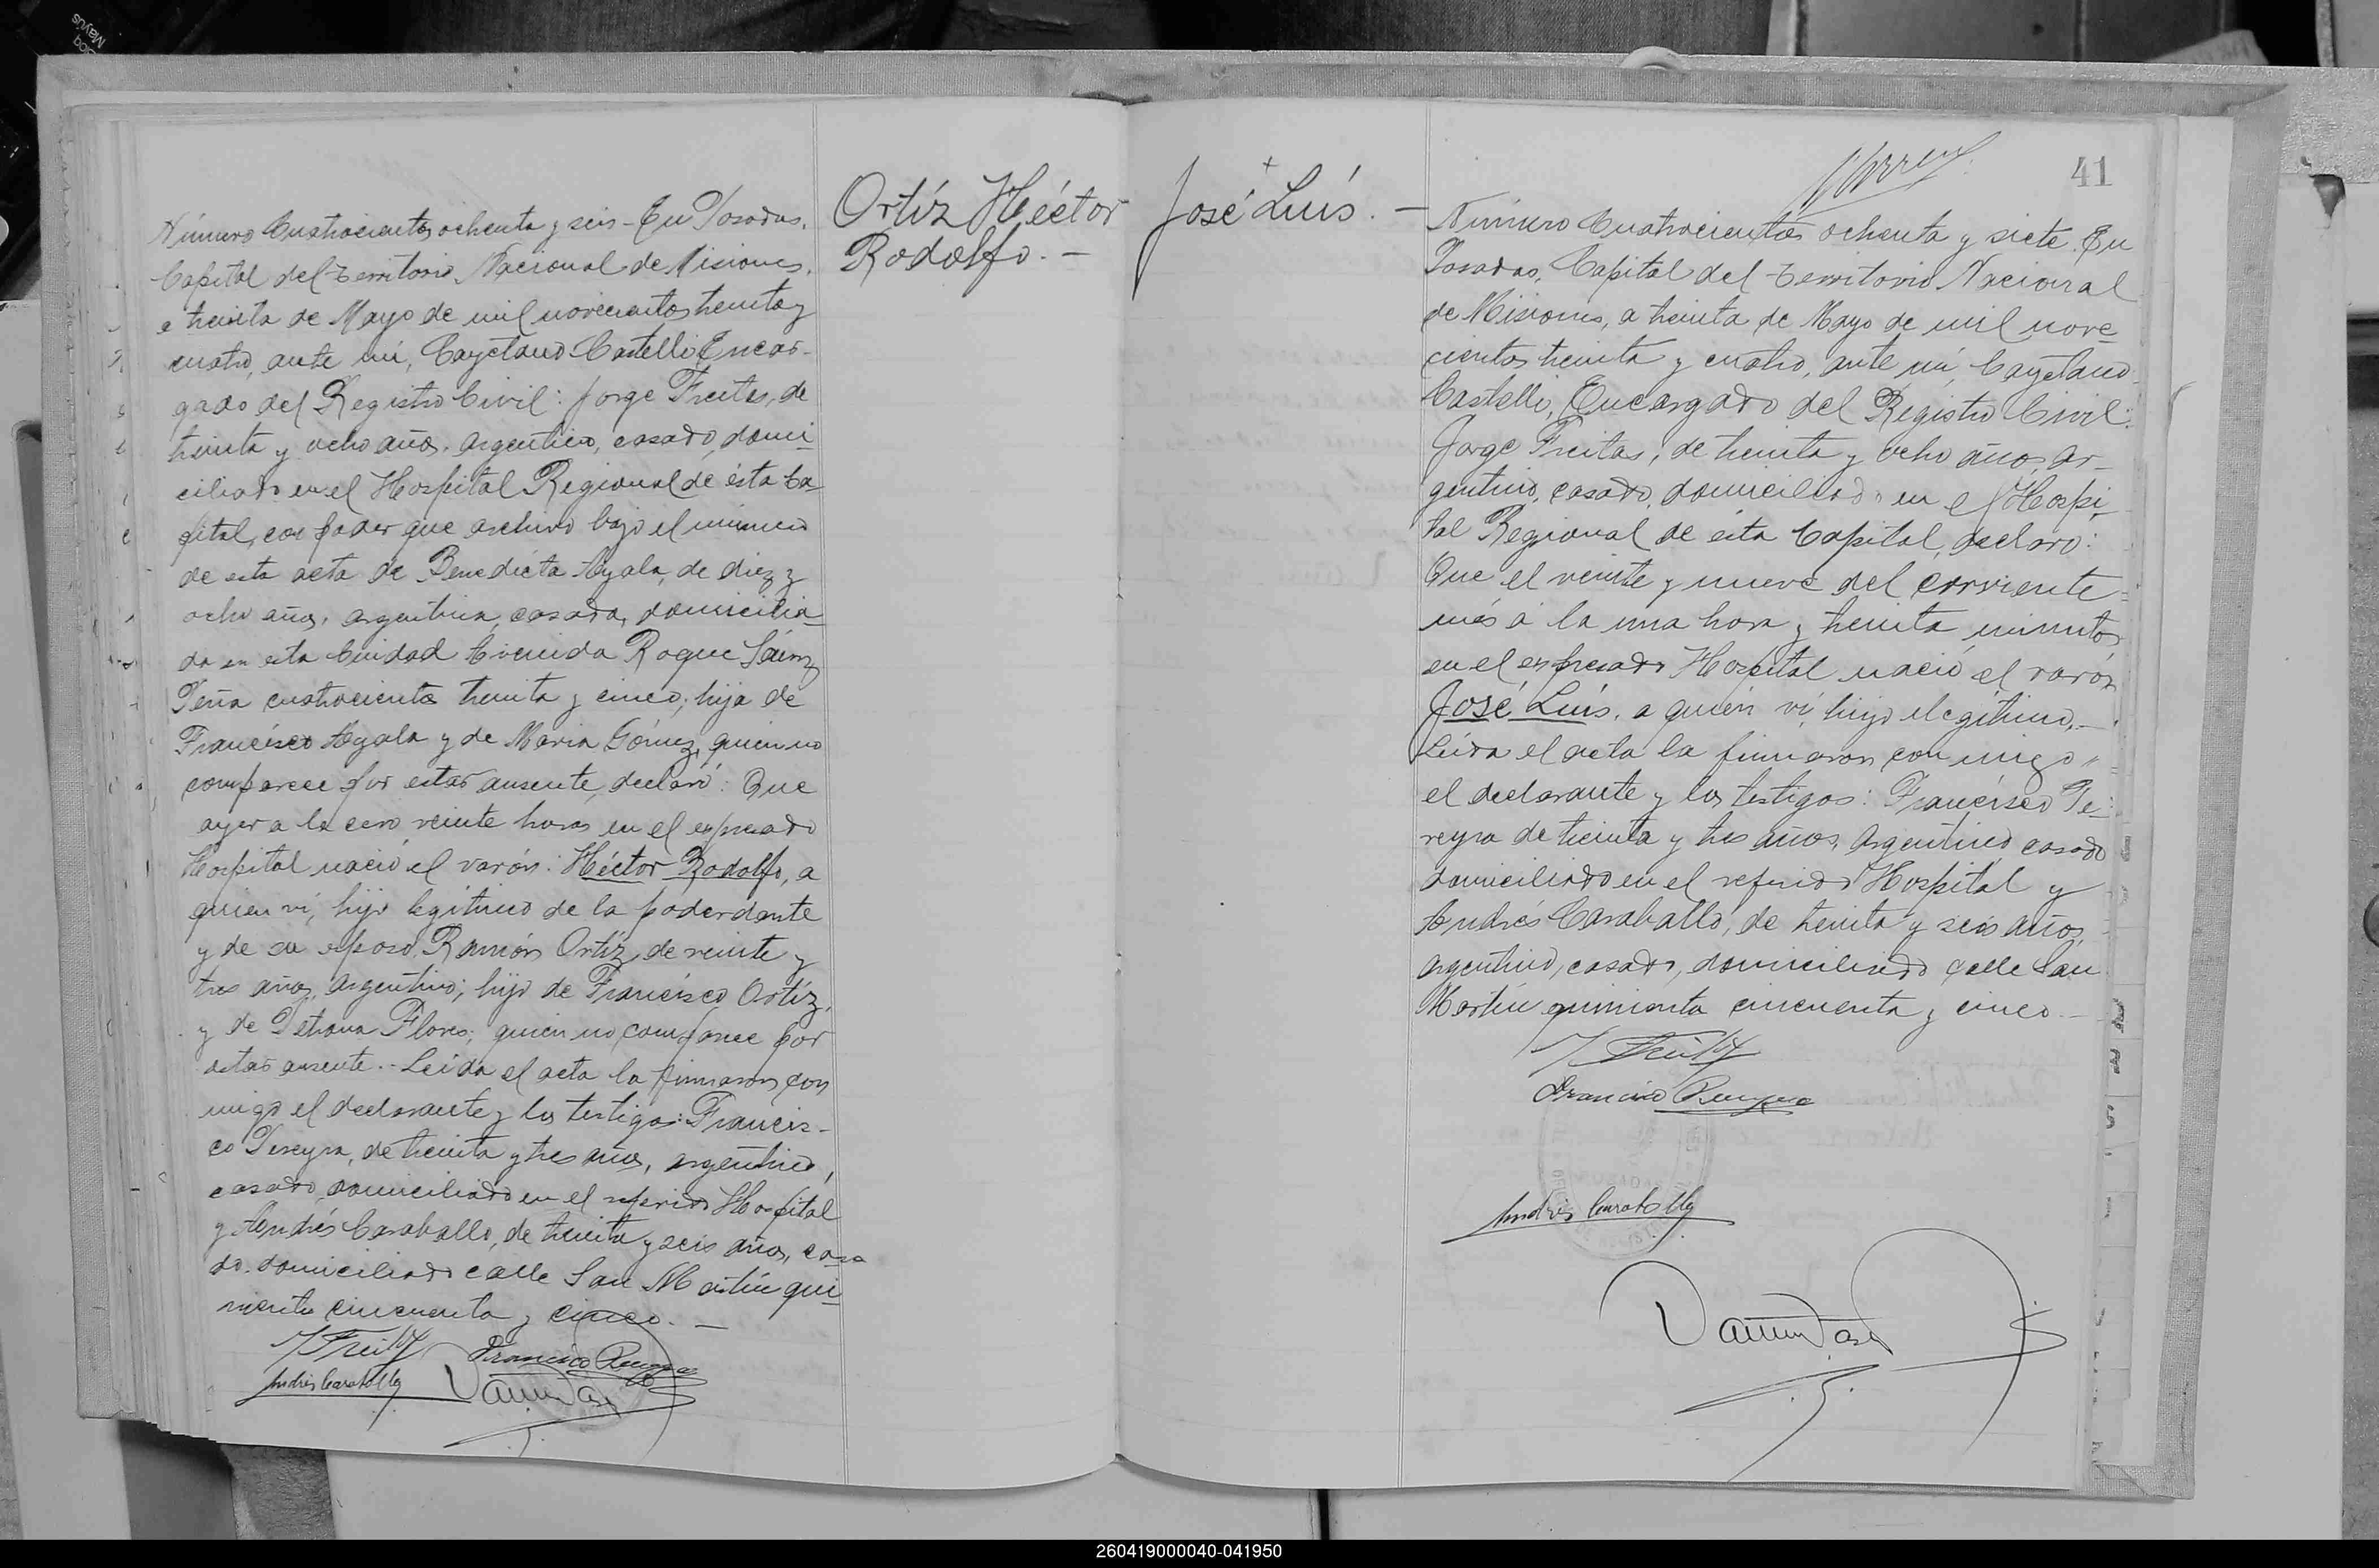 Número Cuatrocientos ochenta y seis - En Posadas,
Capital del Territorio Nacional de Misiones,
a treinta de Mayo de mil novecientos treinta y
cuatro, ante mí, Cayetano Castelli Encar-
gado del Registro Civil: Jorge Freitas, de
treinta y ocho años, argentino, casado, domi-
ciliado en el Hospital Regional de ésta Ca-
pital, con poder que archivo bajo el número
de esta acta de Benedicta Ayala, de diez y
ocho años, argentina, casada, domicilia-
da en esta Ciudad Avenida Roque Sáenz
Peña cuatrocientos treinta y cinco; hija de
Francisco Ayala y de María Gómez, quien no
comparece por estar ausente, declaró: Que
ayer a las cero veinte horas en el expresado
Hospital nació el varón: Héctor Rodolfo, a
quien ví, hijo legítimo de la poderdante
y de su esposo, Ramón Ortíz, de veinte y
tres años, argentino; hijo de Francisco Ortíz,
y de Petrona Flores; quien no comparece por
estar ausente.- Leída el acta la firmaron con
migo el declarante y los testigos: Francis-
co Pereyra, de treinta y tres años, argentino,
casado, domiciliado en el referido Hospital
y Andrés Caraballo, de treinta y seis años, casa
do, domiciliado calle San Martín qui-
nientos cincuenta y cinco. —
J Freitas
Francisco Pereyra
Andrés Caraballo
Ortíz Héctor
Rodolfo. -
José Luís. -
41
Número Cuatrocientos ochenta y siete. En
Posadas, Capital del Territorio Nacional
de Misiones, a treinta de Mayo de mil nove
cientos treinta y cuatro, ante mí, Cayetano
Castelli, Encargado del Registro Civil:
Jorge Freitas, de treinta y ocho años, ar-
gentino, casado, domiciliado en el Hospi-
tal Regional de ésta Capital, declaró:
Que el veinte y nueve del corriente
més á la una hora y treinta minutos
en el expresado Hospital nació el varón
José Luís, a quien ví, hijo ilegítimo.-
Leída el acta la firmaron con migo
el declarante y los testigos: Francisco Pe-
reyra de treinta y tres años, argentino casado
domiciliado en el referido Hospital y
Andrés Caraballo, de treinta y seis años,
argentino, casado, domiciliado calle San
Martín quinientos cincuenta y cinco. -
J Freitas
Francisco Pereyra
Andrés Caraballo
260419000040-041950